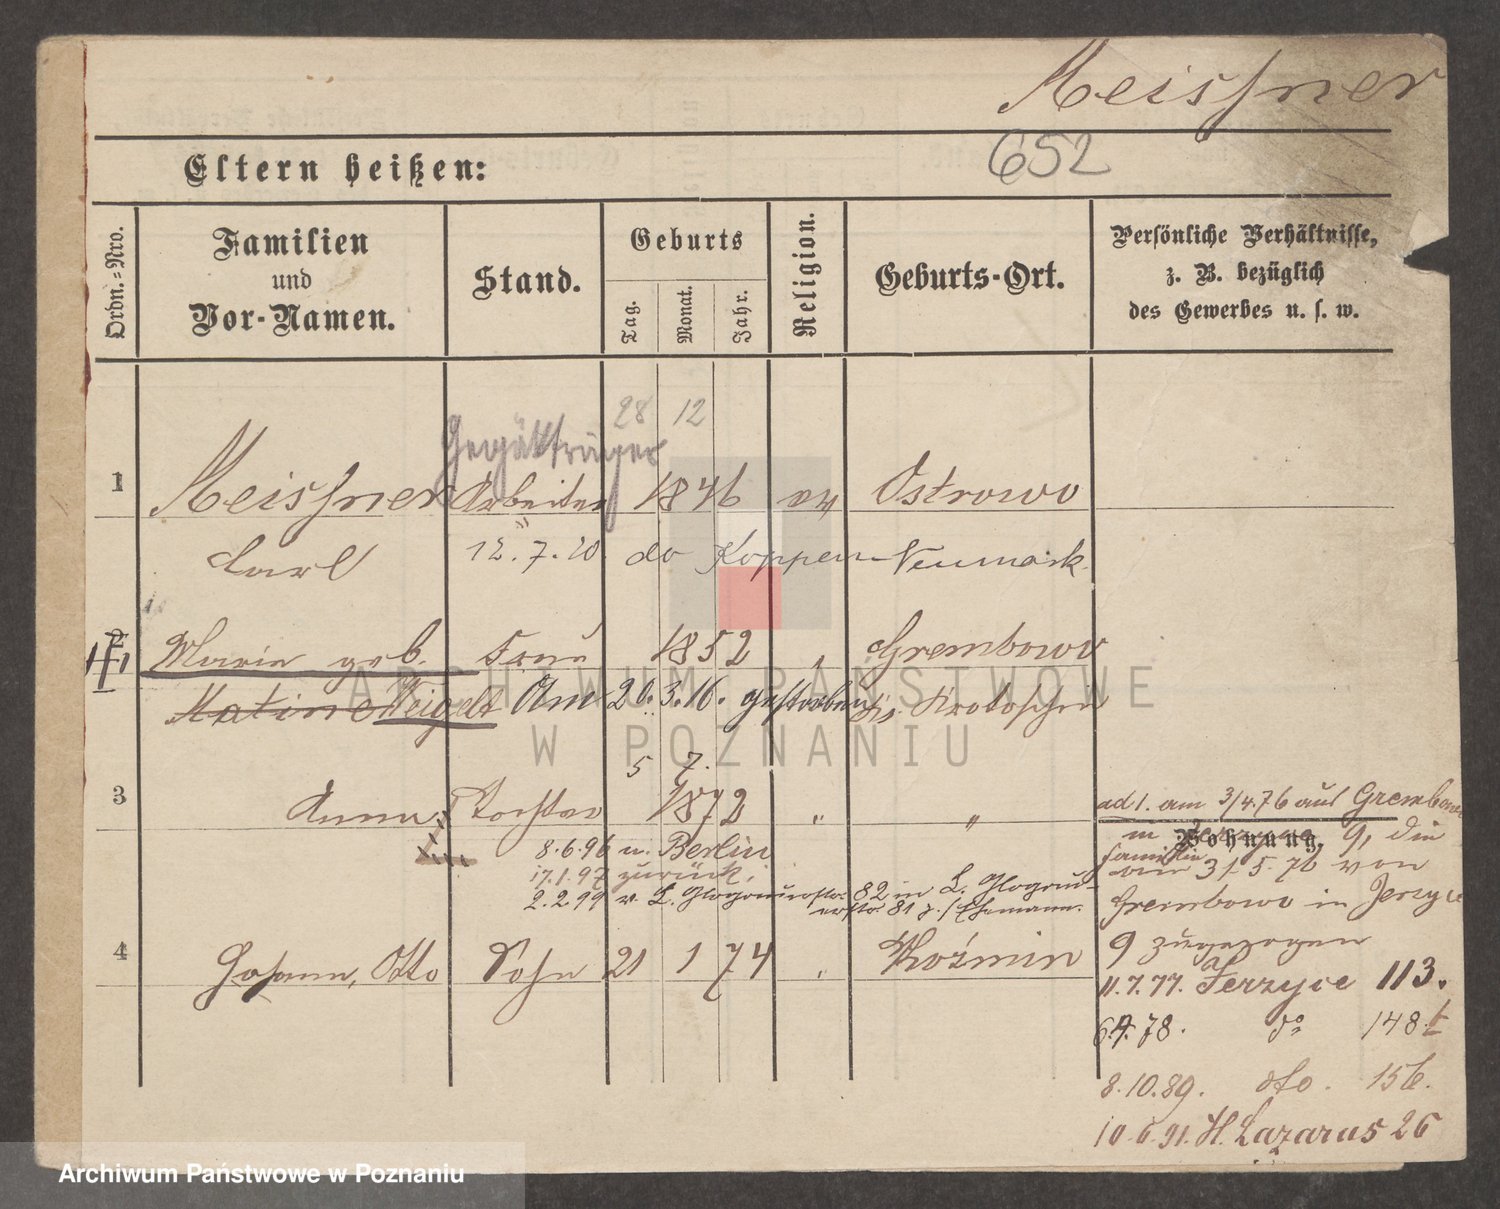 Meissner
652
Eltern heißen:
Ordn.=Nro.
Familien
und
Vor-Namen.
Stand.
Geburts
Tag.
Monat.
Jahr.
Religion.
Geburts-Ort.
Persönliche Verhältnisse,
z. B. bezüglich
des Gewerbes u. s. w.
28 12
Gepäckträger
1 Meissner Arbeiter 1846 ev Ostrowo
Carl 12.7.20. do Koppen-Neumark.
2 Maria geb. Frau 1852 " Grembowo
Weigelt Am 20.3.16. gestorben Krotoschin
5 7.
3 Anna, Tochter 1872 " "
8.6.96 n. Berlin
17.1.97 zurück.
2.2.99 v. L. 82 in L.
81 z. Ehemann.
4 Johann, Otto Sohn 21 1 74 " Koźmin
ad 1. am 3/4.76 aus Grembowo
Wohnung.
in 9, die
Familie
am 31.5.76 von
Grembowo in Jerzyce
9 zugezogen
11.7.77. Jerzyce 113.
do 148
8.10.89. dto. 156.
10.6.91. St. Lazarus 26
ARCHIWUM PAŃSTWOWE
W POZNANIU
Archiwum Państwowe w Poznaniu